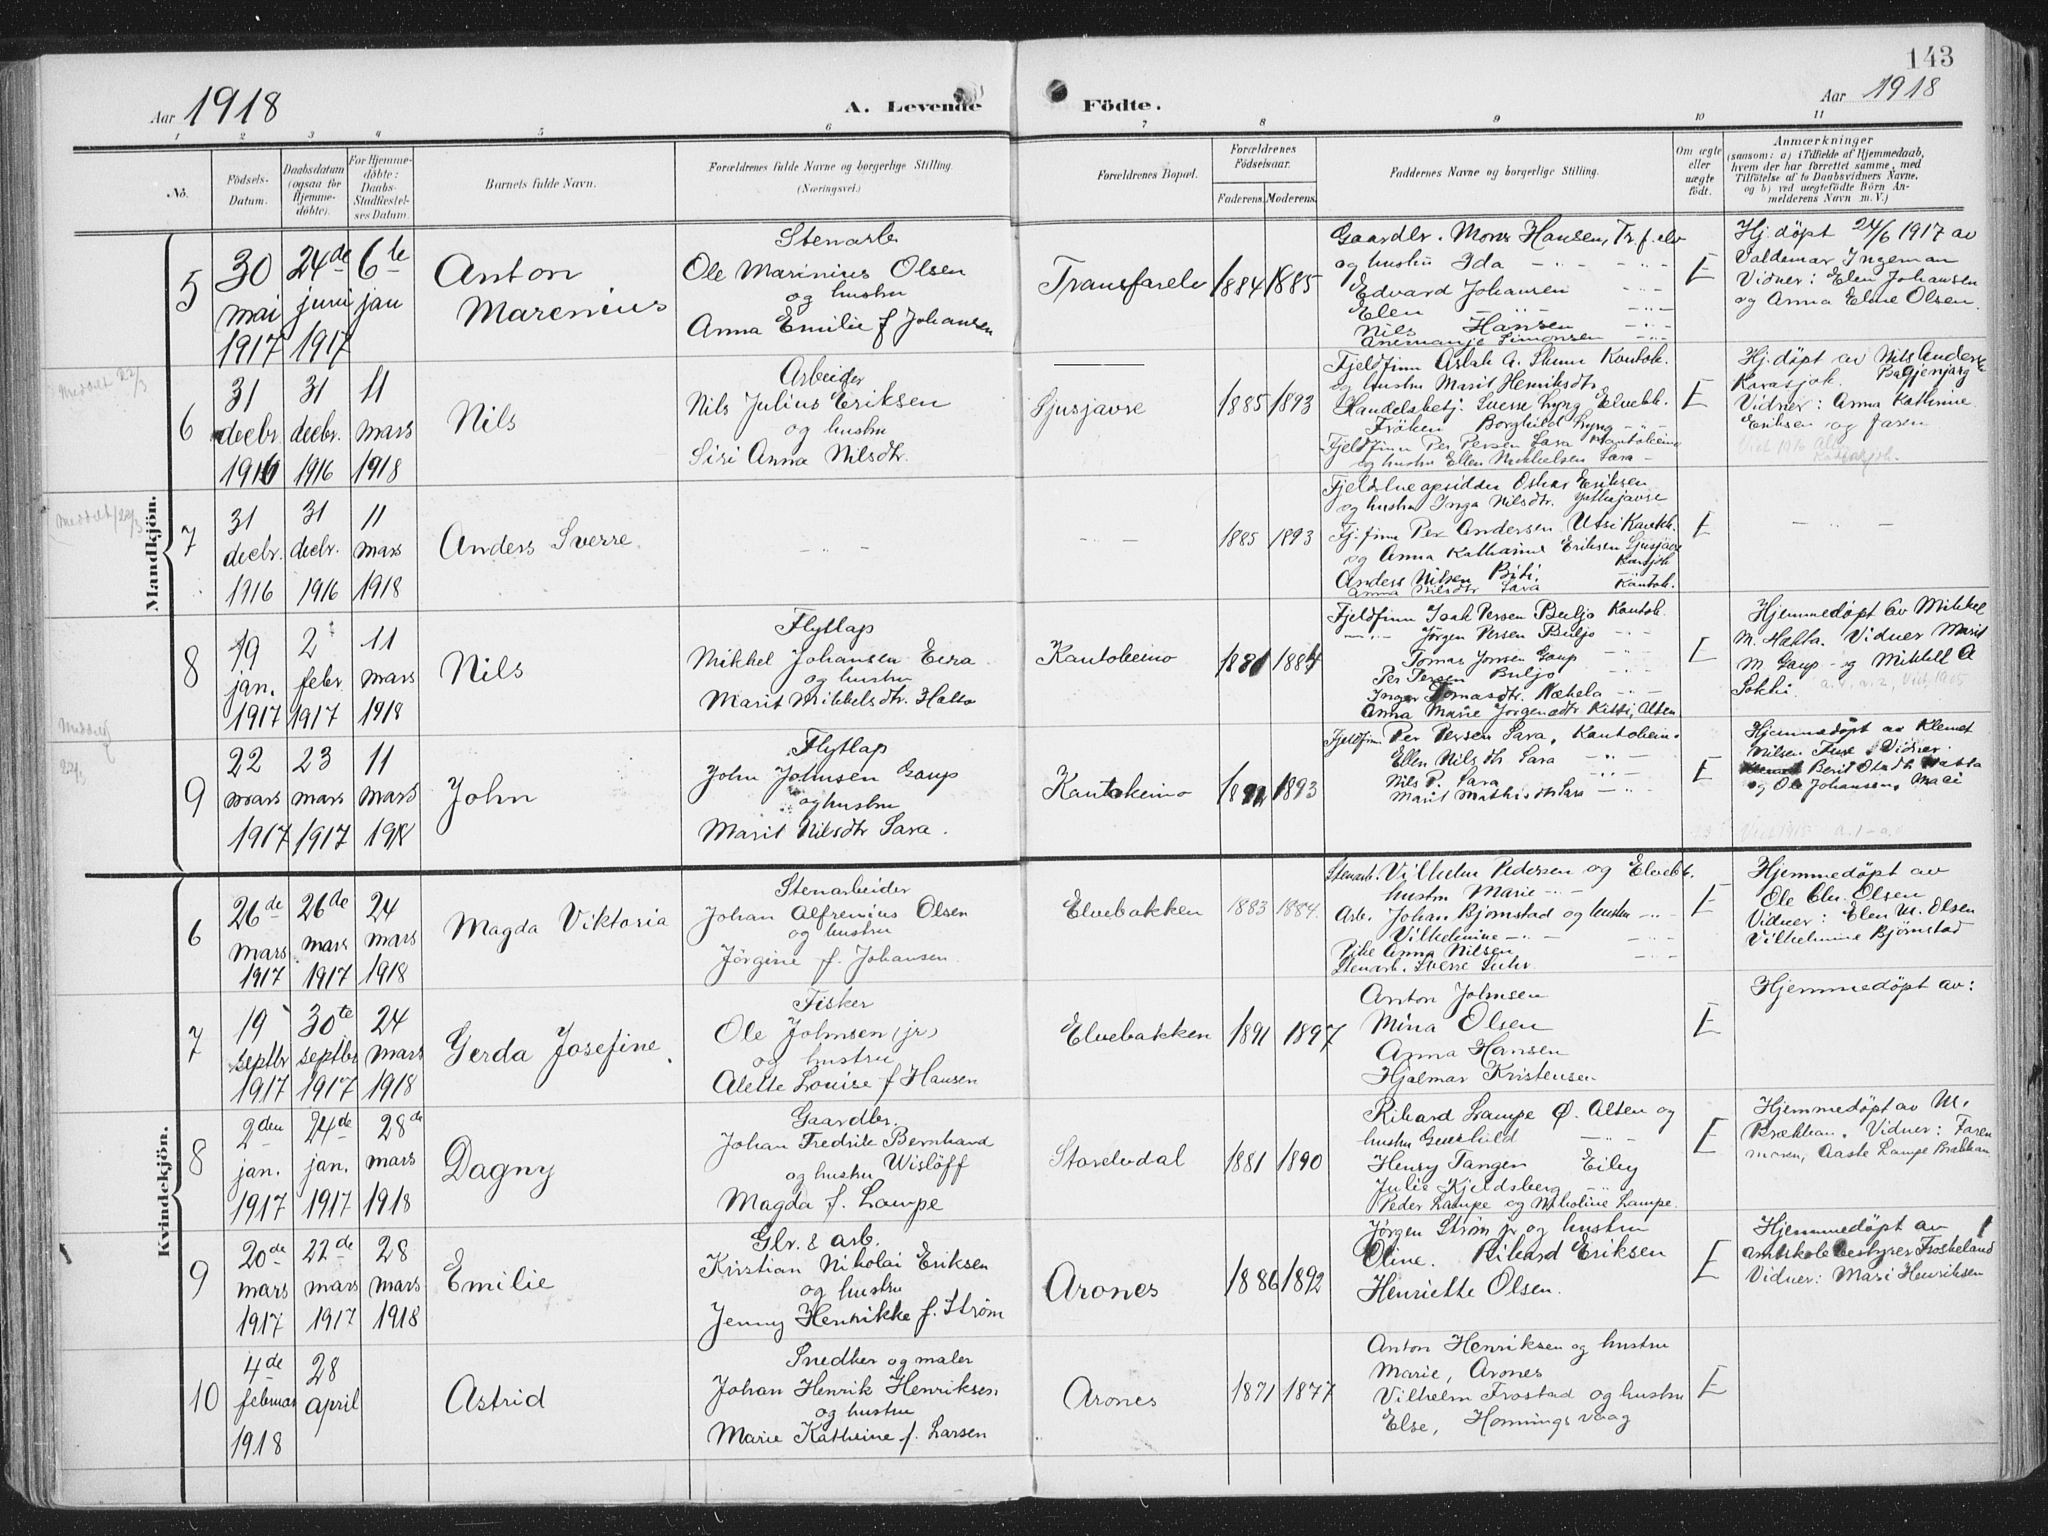 143
Aar 1918
A. Levende Födte.
Aar 1918
1 2 3 4 5 6 7 8 9 10 11
No.
Födsels-Datum.
Daabsdatum (ogsaa for Hjemmedöbte).
For Hjemmedöbte: Daabs-Stadfæstelses Datum.
Barnets fulde Navn.
Forældrenes fulde Navne og borgerlige Stilling. (Næringsvei.)
Forældrenes Bopæl.
Forældrenes Födselsaar.
Faderens. Moderens.
Faddernes Navne og borgerlige Stilling.
Om ægte eller uægte födt.
Anmærkninger
(saasom: a) i Tilfælde af Hjemmedaab, hvem der har forrettet samme, med Tilföielse af to Daabsvidners Navne, og b) ved uægtefödte Börn Anmelderens Navn m. V.)
Mandkjön.
5
30 mai 1917
24de juni 1917
6te jan
Anton Marenius
Stenarb
Ole Marinius Olsen
og hustru
Anna Emilie f Johansen
Transfarelv
1884 1885
Gaardbr. Mons Hansen, Tr.f.elv
og hustru Ida
Edvard Johansen
Elen
Nils Hansen
Anemanje Simonsen
E
Hj. døpt 24/6 1917 av
Valdemar Ingeman
Vidner: Elen Johansen
og Anna Eline Olsen.
Meddelt 22/3
6
31 decbr. 1916
31 decbr. 1916
11 mars 1918
Nils
Arbeider
Nils Julius Eriksen
og hustru
Siri Anna Nilsdtr.
Sjusjavre
1885 1893
Fjeldfinn Aslak A. Skum Kautok.
og hustru Marit Henriksdtr
Handelsbetj. Sverre Lyng Elvebk.
Frøken Borghild Lyng
Fjeldfinn Per Persen Sara Kautokeino
og hustru Ellen Mikkelsen Sara
E
Hj. døpt av Nils Anders
Karasjok.
Vidner: Anna Kathrine
Eriksen og faren
Meddelt 22/3
7
31 decbr. 1916
31 decbr. 1916
11 mars 1918
Anders Sverre
1885 1893
Fjeldstueopsidder Oskar Eriksen
og hustru Inga Nilsdtr.
Fj.finn Per Andersen Utsi Kautk.
og Anna Katharine Eriksen Sjusjavre
Anders Nilsen Kautok.
Anna Nilsdtr Sara Kautok.
E
8
19 jan. 1917
2 febr 1917
11 mars 1918
Nils
Flytlap
Mikkel Johansen Eira
og hustru
Marit Mikkelsdtr. Hætta
Kautokeino
1881 1884
Fjeldfinn Isak Persen Buljo Kautok.
Jørgen Persen Buljo
Tomas Jonsen Gaup
Per Persen Buljo
Inger Tomasdtr. Nækela
Anna Marie Jørgensdtr Kitti, Alten
E
Hjemmedøpt av Mikkel
M. Hætta. Vidner Marit
M. Gaup og Mikkel A
Sokki.
9
22 mars 1917
23 mars 1917
11 mars 1918
John
Flytlap
John Johnsen Gaup
og hustru
Marit Nilsdtr Sara.
Kautokeino
1893
Fjeldfinn Per Persen Sara, Kautokeino
Ellen Nilsdtr Sara
Nils P. Sara
Marit Mathisdtr Sara
E
Hjemmedøpt av Klemet
Nilsen. Vidner
Berit Olsdtr Hætta
og Ole Johansen
Kvindekjön.
6
26de mars 1917
26de mars 1917
24 mars 1918
Magda Viktoria
Stenarbeider
Johan Alfrenius Olsen
og hustru
Jørgine f. Johansen.
Elvebakken
1883 1884.
Stenarb. Vilhelm Pedersen og Elvebk.
hustru Marie
Arb. Johan Bjørnstad og hustru
Vilhelmine
Pike Anna Nilsen
Stenarb. Sverre Suhr
E
Hjemmedøpt av
Ole Chr. Olsen
Vidner: Elen M. Olsen
Vilhelmine Bjørnstad
7
19 septbr 1917
30te septbr 1917
24 mars 1918
Gerda Josefine.
Fisker
Ole Johnsen (jr)
og hustru
Alette Louise f Hansen
Elvebakken
1891 1897
Anton Johnsen
Mina Olsen
Anna Hansen
Hjalmar Kristensen
E
Hjemmedøpt av:
8
2den jan. 1917
24de jan. 1917
28de mars 1918
Dagny
Gaardbr.
Johan Fredrik Bernhard
og hustru Wisløff
Magda f. Lampe
Storelvdal
1881 1890
Rikard Lampe Ø. Alten og
hustru Gunhild
Henry Tangen Eiby
Julie Kjeldsberg
Peder Lampe og Nikoline Lampe.
E
Hjemmedøpt av M.
Brækkan. Vidner: Faren
moren, Aaste Lampe Brækkan
9
20de mars 1917
22de mars 1917
28 mars 1918
Emilie
Gbr. & arb.
Kristian Nikolai Eriksen
og hustru
Jenny Henrikke f. Strøm
Arones
1886 1892
Jørgen Strøm jr og hustru
Oline. Rikard Eriksen
Henriette Olsen.
E
Hjemmedøpt av
amtskolebestyrer Froskeland
Vidner: Mari Henriksen
10
4de februar 1918
28 april
Astrid
Snedker og maler
Johan Henrik Henriksen
og hustru
Marie Kathrine f. Larsen
Arones
1871 1877
Anton Henriksen og hustru
Marie, Arones
Vilhelm Frostad og hustru
Else, Honningsvaag
E